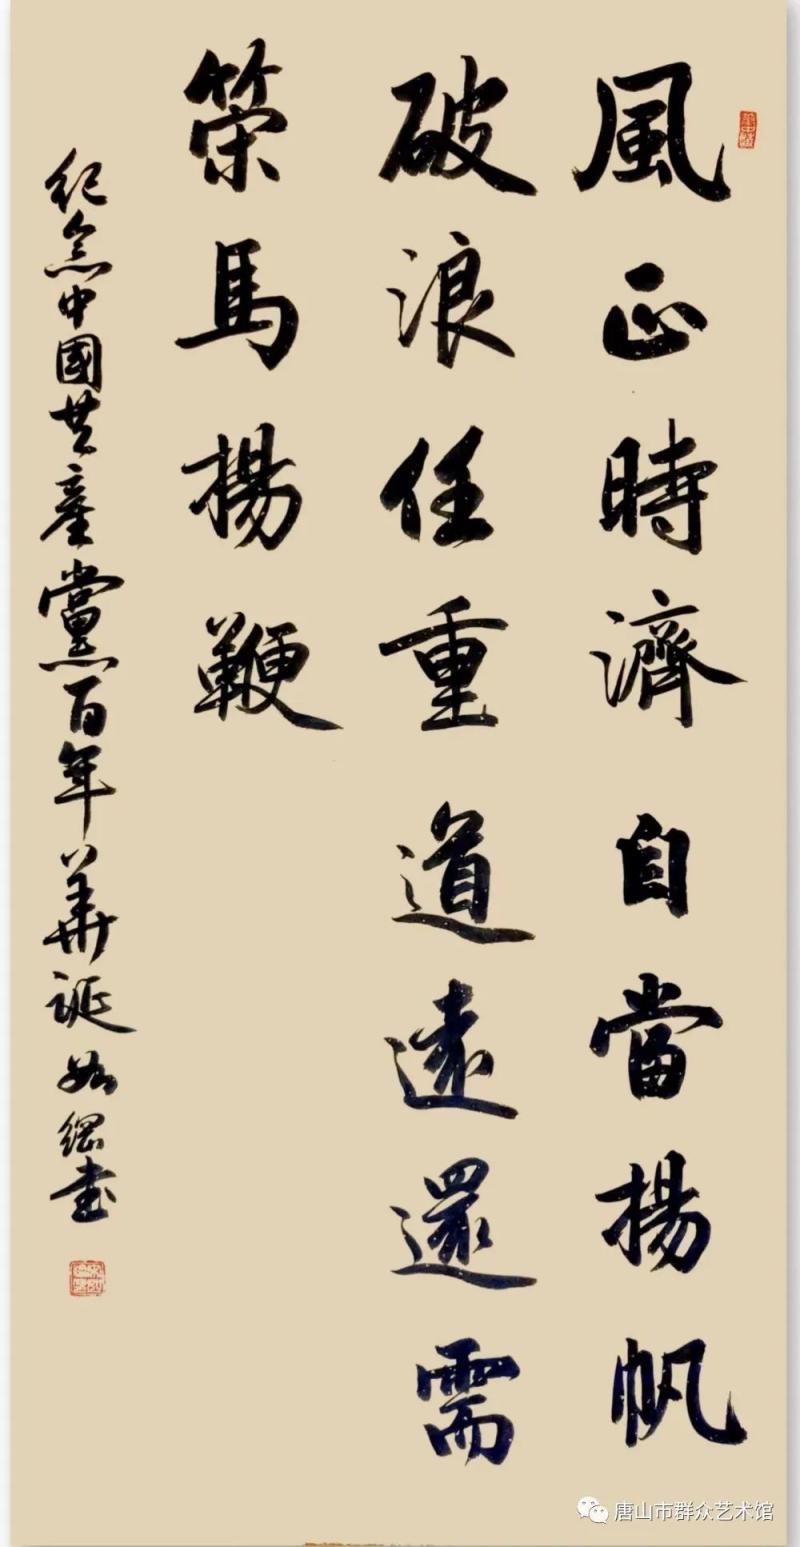 風正時濟自當揚帆
破浪任重道遠還需
策馬揚鞭
紀念中國共產黨百年華誕如綱書
唐山市群众艺术馆